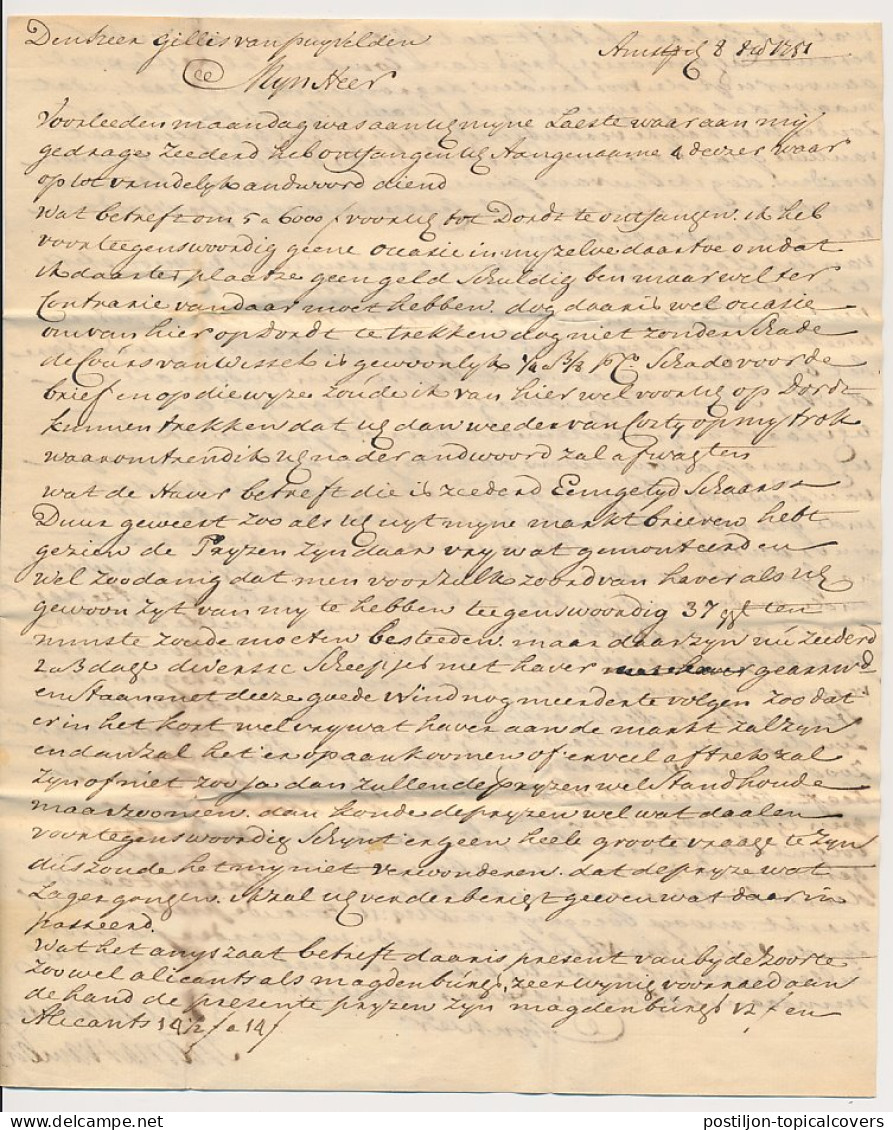 Den heer Gillis van puyvelden
Amst 8 1751
Myn Heer
Voorleeden maandag was aan UE myne Laeste waar aan my
gedrage zeederd heb ontfangen UE Aangenaame 4 deezer waar
op tot vrindelyk andwoord diend
wat betreft om 5 a 6000 f voor UE tot Dordt te ontfangen. ik heb
voor teegenswoordig geene occasie in my zelve daar toe omdat
ik daar ter plaatze geen geld schuldig ben maar wel ter
Contrarie van daar moet hebben. dog daar is wel occasie
om van hier op Dordt te trekken dog niet zonder schade
de Cours van wissel is gewoonlyk 1/4 a 3/8 pCo. schade voor de
brief en op die wyze zoude ik van hier wel voor UE op Dordt
kunnen trekken dat UE dan weeder van op my trok
waaromtrend ik UE nader andwoord zal afwagten
wat de Haver betreft die is zeederd Eenige tyd schaars &
Duur geweest zoo als UE uyt myne markt brieven hebt
gezien de Pryzen zyn daar vry wat gemonteerd en
wel zoodanig dat men voor zulk zoord van haver als UE
gewoon zyt van my te hebben teegenswoordig 37 ggl ten
minste zoude moeten besteeden. maar daar zyn nu zeederd
2 a 3 dage diverse scheepjes met haver gearrivd
en staan met deeze goede wind nog meerder te volgen zoo dat
er in het kort wel vry wat haver aan de markt zal zyn
en dan zal het er op aan koomen of er veel aftrek zal
zyn of niet zoo ja dan zullen de pryzen wel stand houde
maar zoo neen. dan konde de pryzen wel wat daalen
voor tegenswoordig schynt er geen heele groote vraage te zyn
dus zoude het my niet verwonderen. dat de pryze wat
Lager gongen. ik zal UE verder berigt geeven wat daar in
passeerd.
Wat het anyszaat betreft daar is present van byde zoorte
zoo wel alicants als magdenburgs zeer wynig voorraed aan
de hand de presente pryzen zyn magdenburgs 12 f en
Alicants 14 1/2 f a 14 f
postiljon-topicalcovers